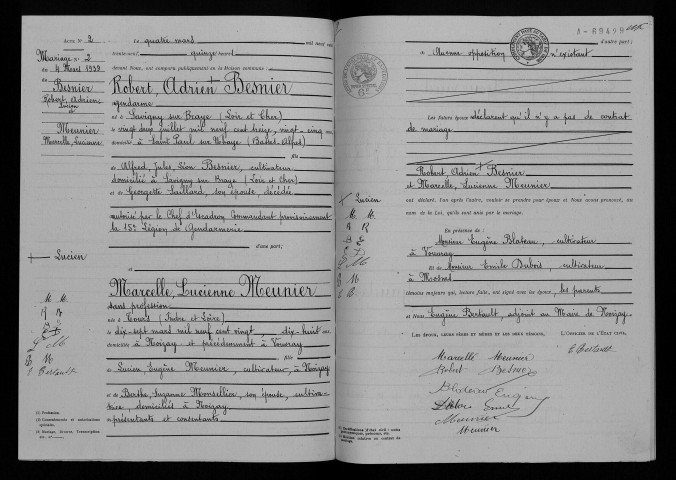 Acte N° 2
Mariage N° 2
du 4 Mars 1939
de
Besnier
Robert, Adrien
Lucien
à
Meunier
Marcelle, Lucienne
+ Lucien
M M
R B
B M
E Bertault
Le quatre mars mil neuf cent
trente-neuf, quinze heures
devant Nous, ont comparu publiquement en la Maison commune :
Robert, Adrien + Besnier
gendarme
né à Savigny sur Braye (Loir et Cher)
le vingt deux juillet mil neuf cent treize, vingt-cinq ans
domicilié à Saint Paul sur Ubaye (Basses-Alpes)
fils
de Alfred, Jules, Léon Besnier, cultivateur
domicilié à Savigny sur Braye (Loir et Cher)
et de Georgette Gaillard, son épouse, décédée
autorisé par le Chef d'Escadron Commandant provisoirement
la 15e Légion de Gendarmerie
d'une part ;
et
Marcelle, Lucienne Meunier
sans profession
née à Tours (Indre et Loire)
le dix-sept mars mil neuf cent vingt, dix-huit ans
domiciliée à Noizay et précédemment à Vouvray
fille
de Lucien Eugène Meunier, cultivateur, à Noizay
et de Berthe, Suzanne Monsellier, son épouse, cultiva-
trice, domiciliés à Noizay
présentants et consentants
(1) Profession.
d'autre part ;
Aucune opposition n'existant
Les futurs époux déclarent qu'il n'y a pas de contrat
de mariage
Robert, Adrien + Besnier
et Marcelle, Lucienne Meunier
ont déclaré, l'un après l'autre, vouloir se prendre pour époux et Nous avons prononcé, au
nom de la Loi, qu'ils sont unis par le mariage.
+ Lucien
M M
R B
B M
E B
En présence de :
Monsieur Eugène Blateau, cultivateur
à Vouvray
et de Monsieur Emile Dubois, cultivateur
à Mosnes
témoins majeurs qui, lecture faite, ont signé avec les époux, les parents
et Nous Eugène Bertault, adjoint au Maire de Noizay
Les époux, leurs pères et mères et les deux témoins,
L'Officier de l'État civil,
Marcelle Meunier
E Bertault
Robert Besnier
Blateau Eugène
Meunier
Meunier